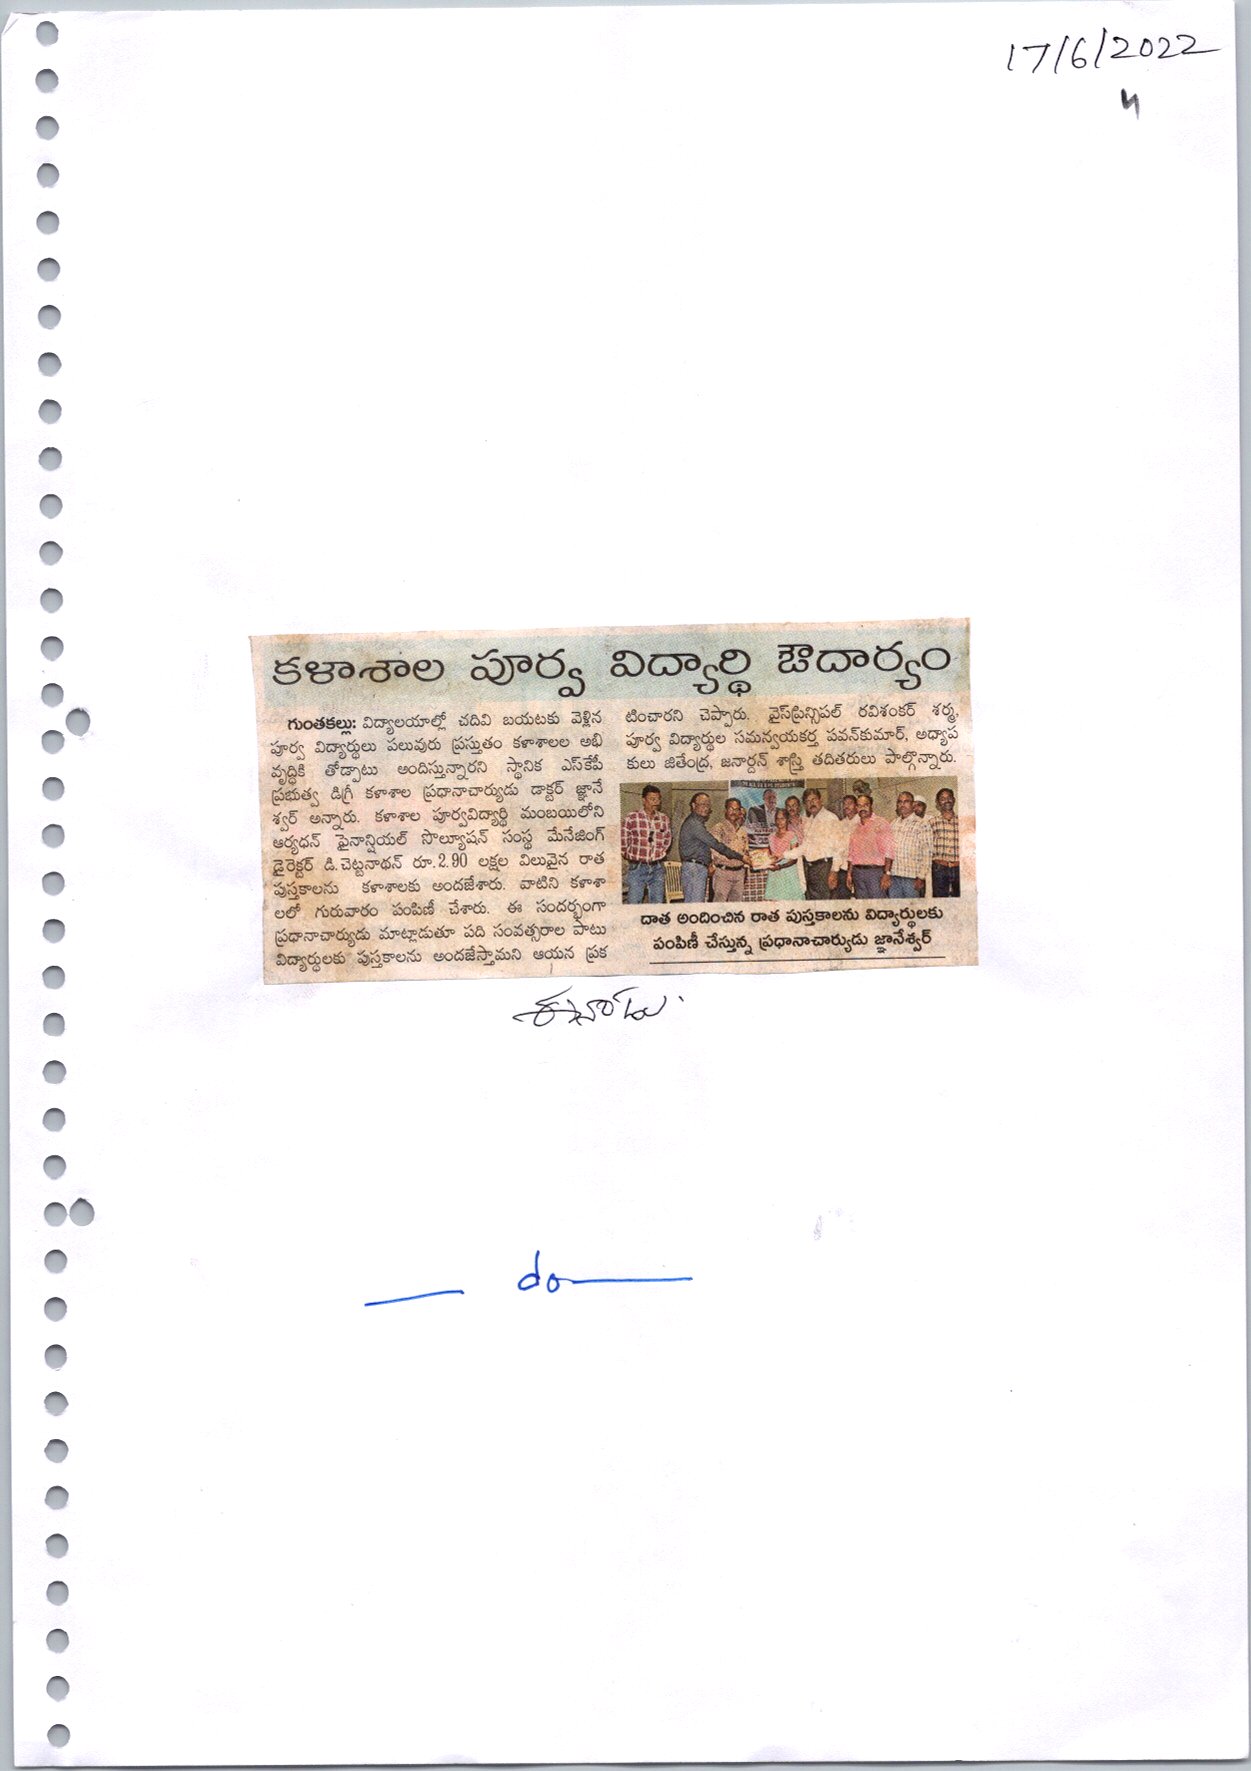 17/6/2022
కళాశాల పూర్వ విద్యార్థి ఔదార్యం
గుంతకల్లు: విద్యాలయాల్లో చదివి బయటకు వెళ్లిన
పూర్వ విద్యార్థులు పలువురు ప్రస్తుతం కళాశాలల అభి
వృద్ధికి తోడ్పాటు అందిస్తున్నారని స్థానిక ఎస్‌కేపీ
ప్రభుత్వ డిగ్రీ కళాశాల ప్రధానాచార్యుడు డాక్టర్ జ్ఞానే
శ్వర్ అన్నారు. కళాశాల పూర్వవిద్యార్థి మంబయిలోని
ఆర్యధన్ ఫైనాన్షియల్ సొల్యూషన్ సంస్థ మేనేజింగ్
డైరెక్టర్ డి.చెట్టనాథన్ రూ.2.90 లక్షల విలువైన రాత
పుస్తకాలను కళాశాలకు అందజేశారు. వాటిని కళాశా
లలో గురువారం పంపిణీ చేశారు. ఈ సందర్భంగా
ప్రధానాచార్యుడు మాట్లాడుతూ పది సంవత్సరాల పాటు
విద్యార్థులకు పుస్తకాలను అందజేస్తామని ఆయన ప్రక
టించారని చెప్పారు. వైస్‌ప్రిన్సిపల్ రవిశంకర్ శర్మ,
పూర్వ విద్యార్థుల సమన్వయకర్త పవన్‌కుమార్, అధ్యాప
కులు జితేంద్ర, జనార్దన్ శాస్త్రి తదితరులు పాల్గొన్నారు.
దాత అందించిన రాత పుస్తకాలను విద్యార్థులకు
పంపిణీ చేస్తున్న ప్రధానాచార్యుడు జ్ఞానేశ్వర్
ఈనాడు
do